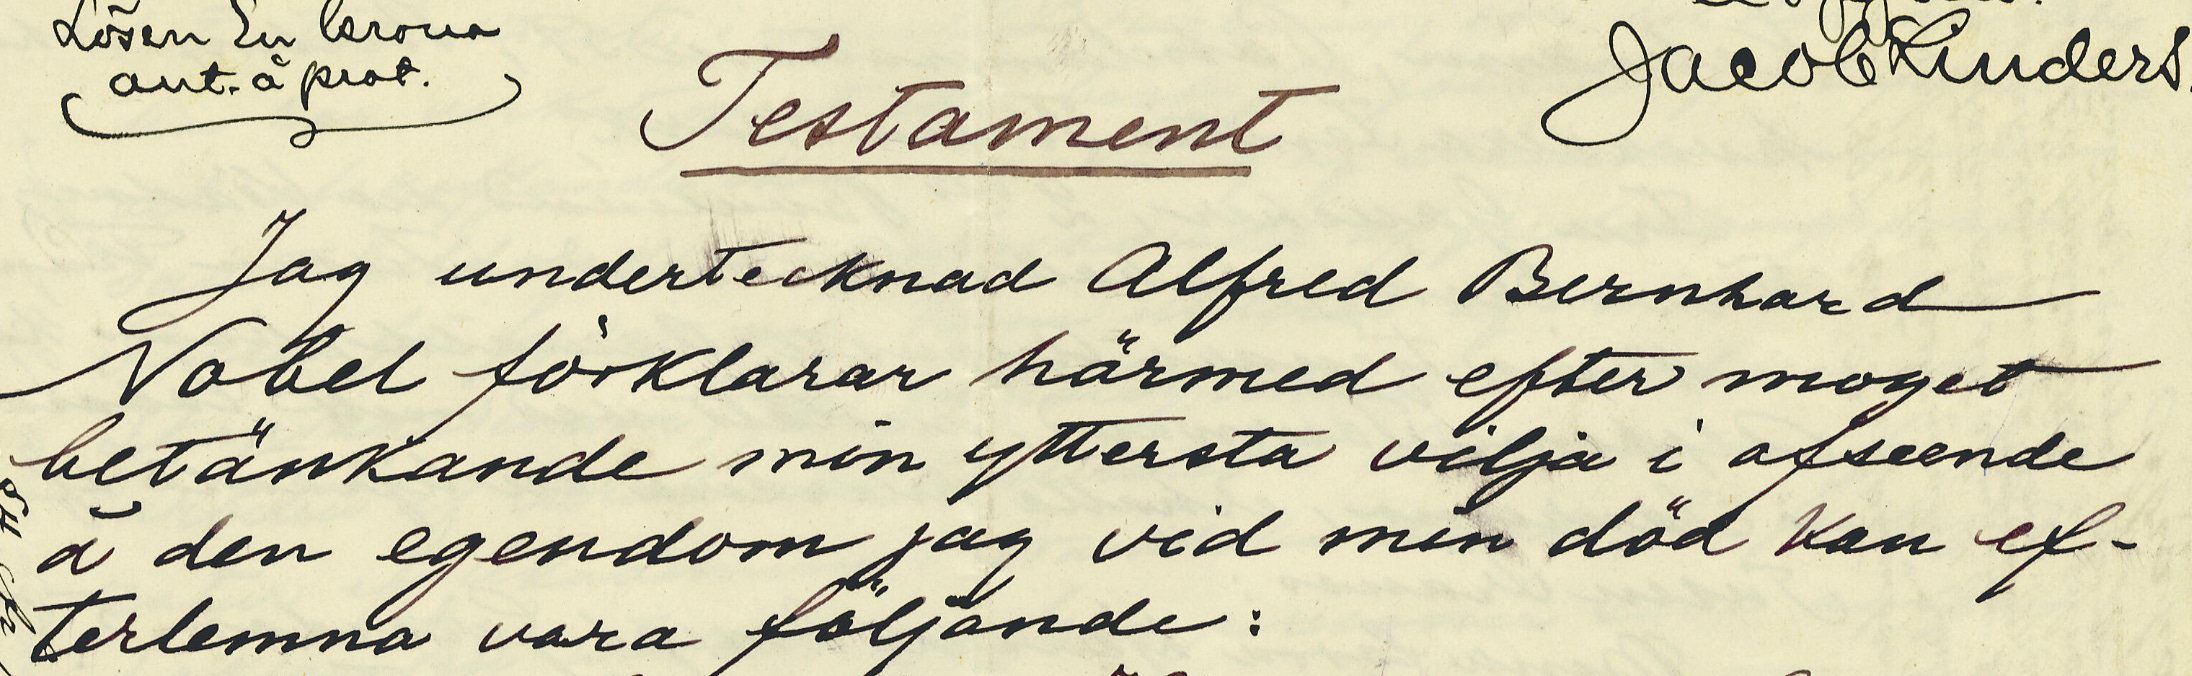 Lösen En krona
ant. å prot.
Jacob Linders
Testament
Jag undertecknad Alfred Bernhard
Nobel förklarar härmed efter moget
betänkande min yttersta vilja i afseende
å den egendom jag vid min död kan ef-
terlemna vara följande: